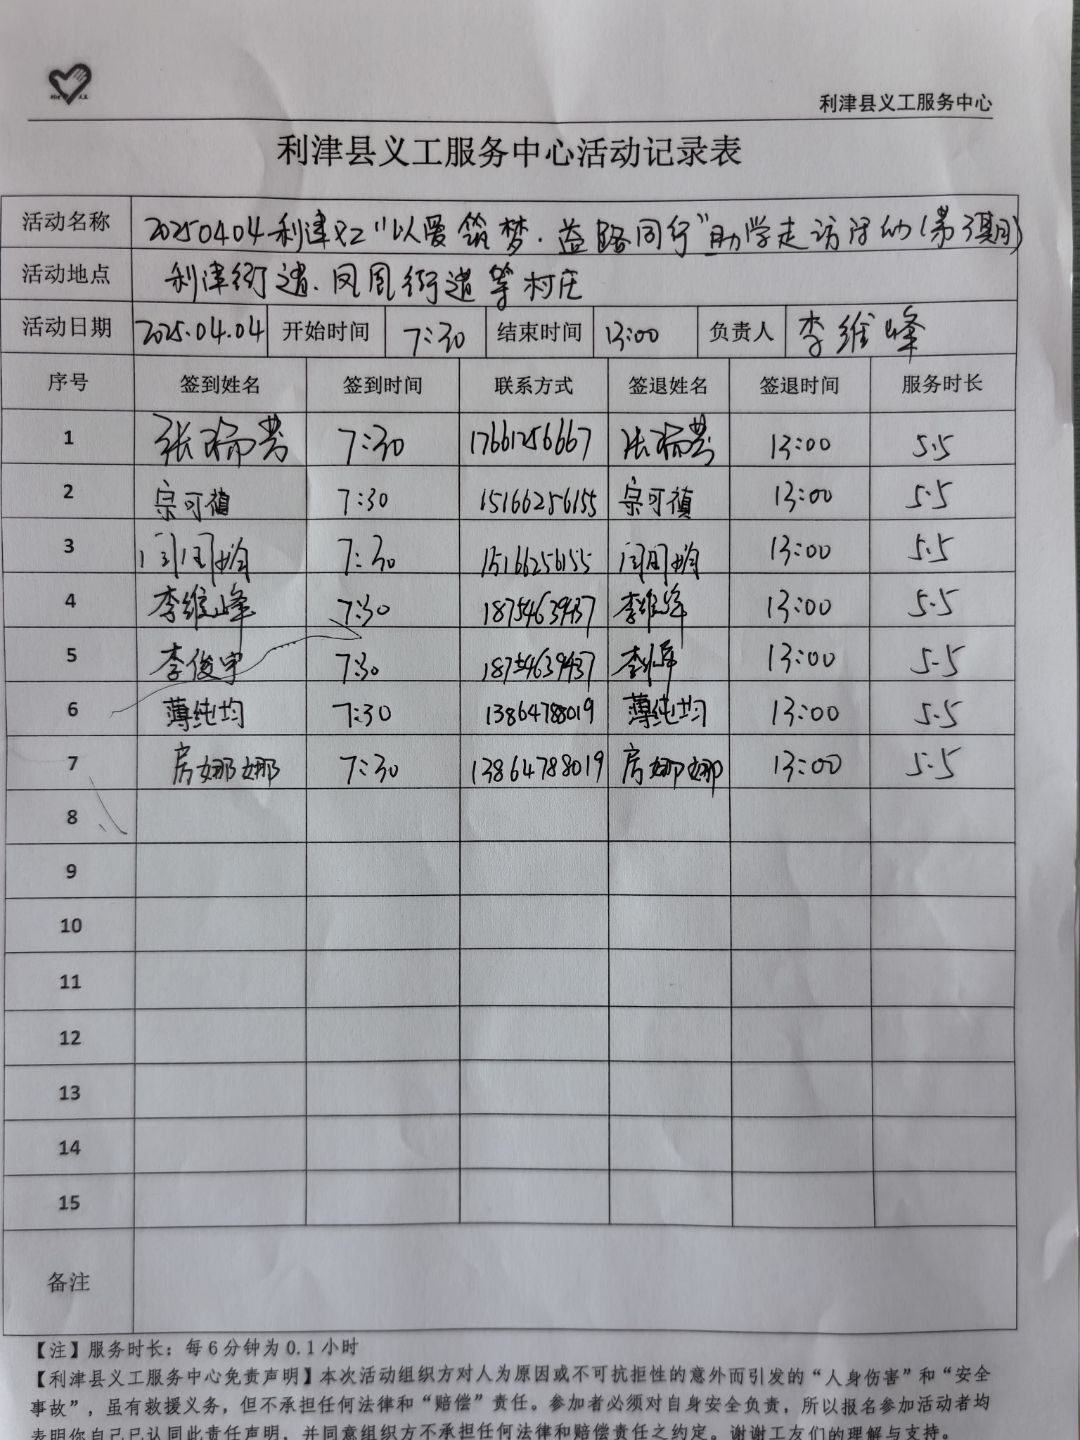 利津县义工服务中心
利津县义工服务中心活动记录表
活动名称 20250404利津义工"以爱筑梦·益路同行"助学走访活动(第3期)
活动地点 利津街道、凤凰街道等村庄
活动日期 2025.04.04 开始时间 7:30 结束时间 13:00 负责人 李维峰
序号 签到姓名 签到时间 联系方式 签退姓名 签退时间 服务时长
1 张瑞芳 7:30 17661256667 张瑞芳 13:00 5.5
2 宗可禛 7:30 15166256155 宗可禛 13:00 5.5
3 7:30 15166256155 13:00 5.5
4 李维峰 7:30 18754639437 李维峰 13:00 5.5
5 李俊宇 7:30 18754639437 13:00 5.5
6 薄纯均 7:30 13864788019 薄纯均 13:00 5.5
7 房娜娜 7:30 13864788019 房娜娜 13:00 5.5
8
9
10
11
12
13
14
15
备注
【注】服务时长：每6分钟为0.1小时
【利津县义工服务中心免责声明】本次活动组织方对人为原因或不可抗拒性的意外而引发的“人身伤害”和“安全
事故”，虽有救援义务，但不承担任何法律和“赔偿”责任。参加者必须对自身安全负责，所以报名参加活动者均
表明你自己已认同此责任声明，并同意组织方不承担任何法律和赔偿责任之约定。谢谢工友们的理解与支持。